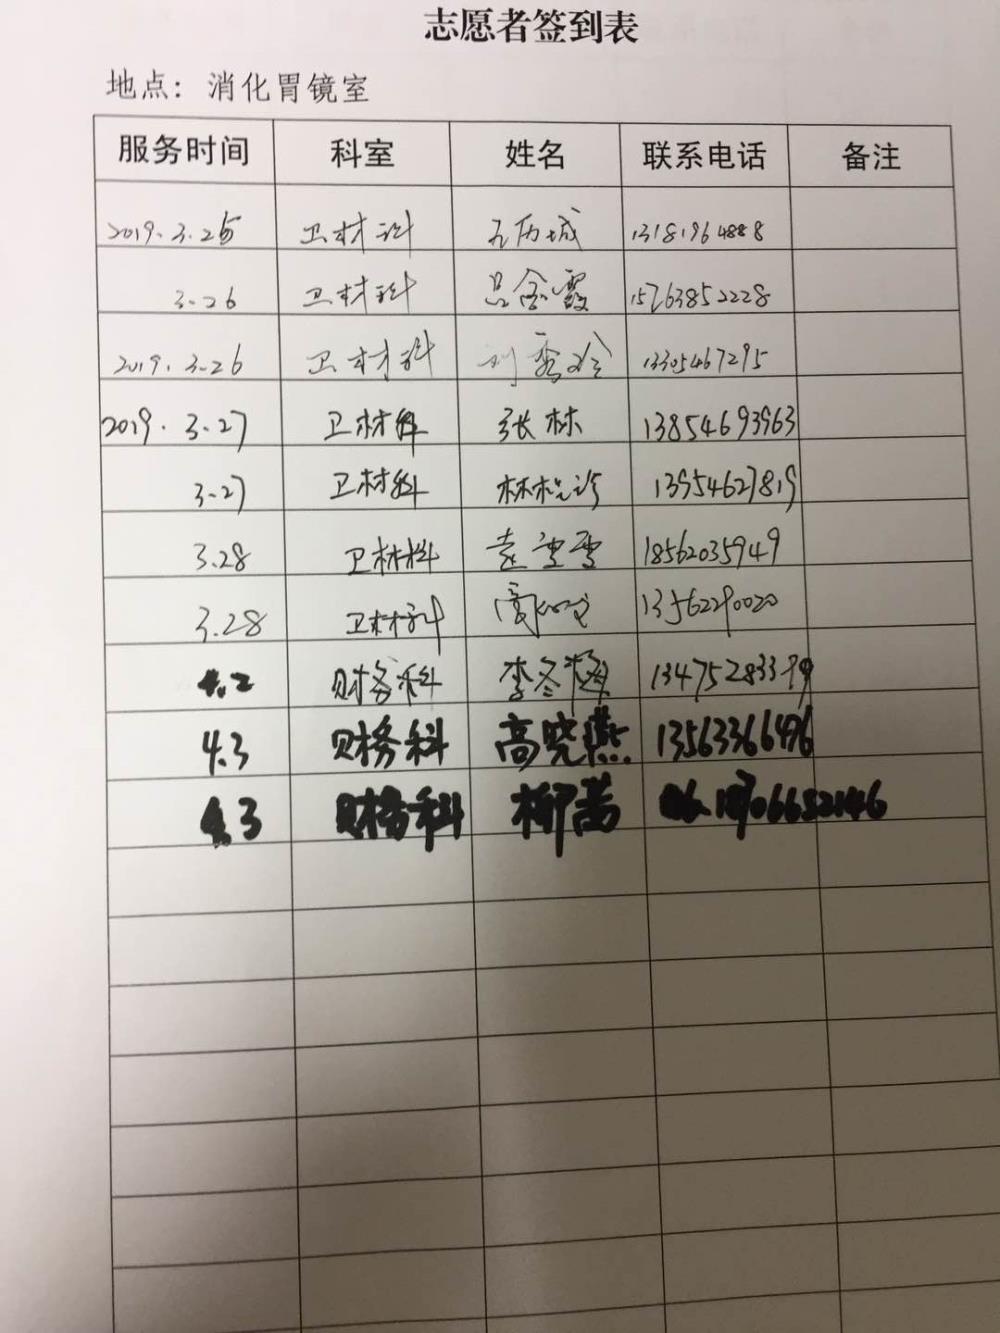 志愿者签到表
地点：消化胃镜室
服务时间 科室 姓名 联系电话 备注
2019.3.25 卫材科 13181964888
3.26 卫材科 吕金霞 15763852228
2019.3.26 卫材科 刘秀玲 13305467295
2019.3.27 卫材科 张林 13854693963
3.27 卫材科 13954627819
3.28 卫材科 袁雪雪 18562035949
3.28 卫材科 13562290020
4.2 财务科 李冬梅
4.3 财务科 高晓燕 13563366496
4.3 财务科 柳茜